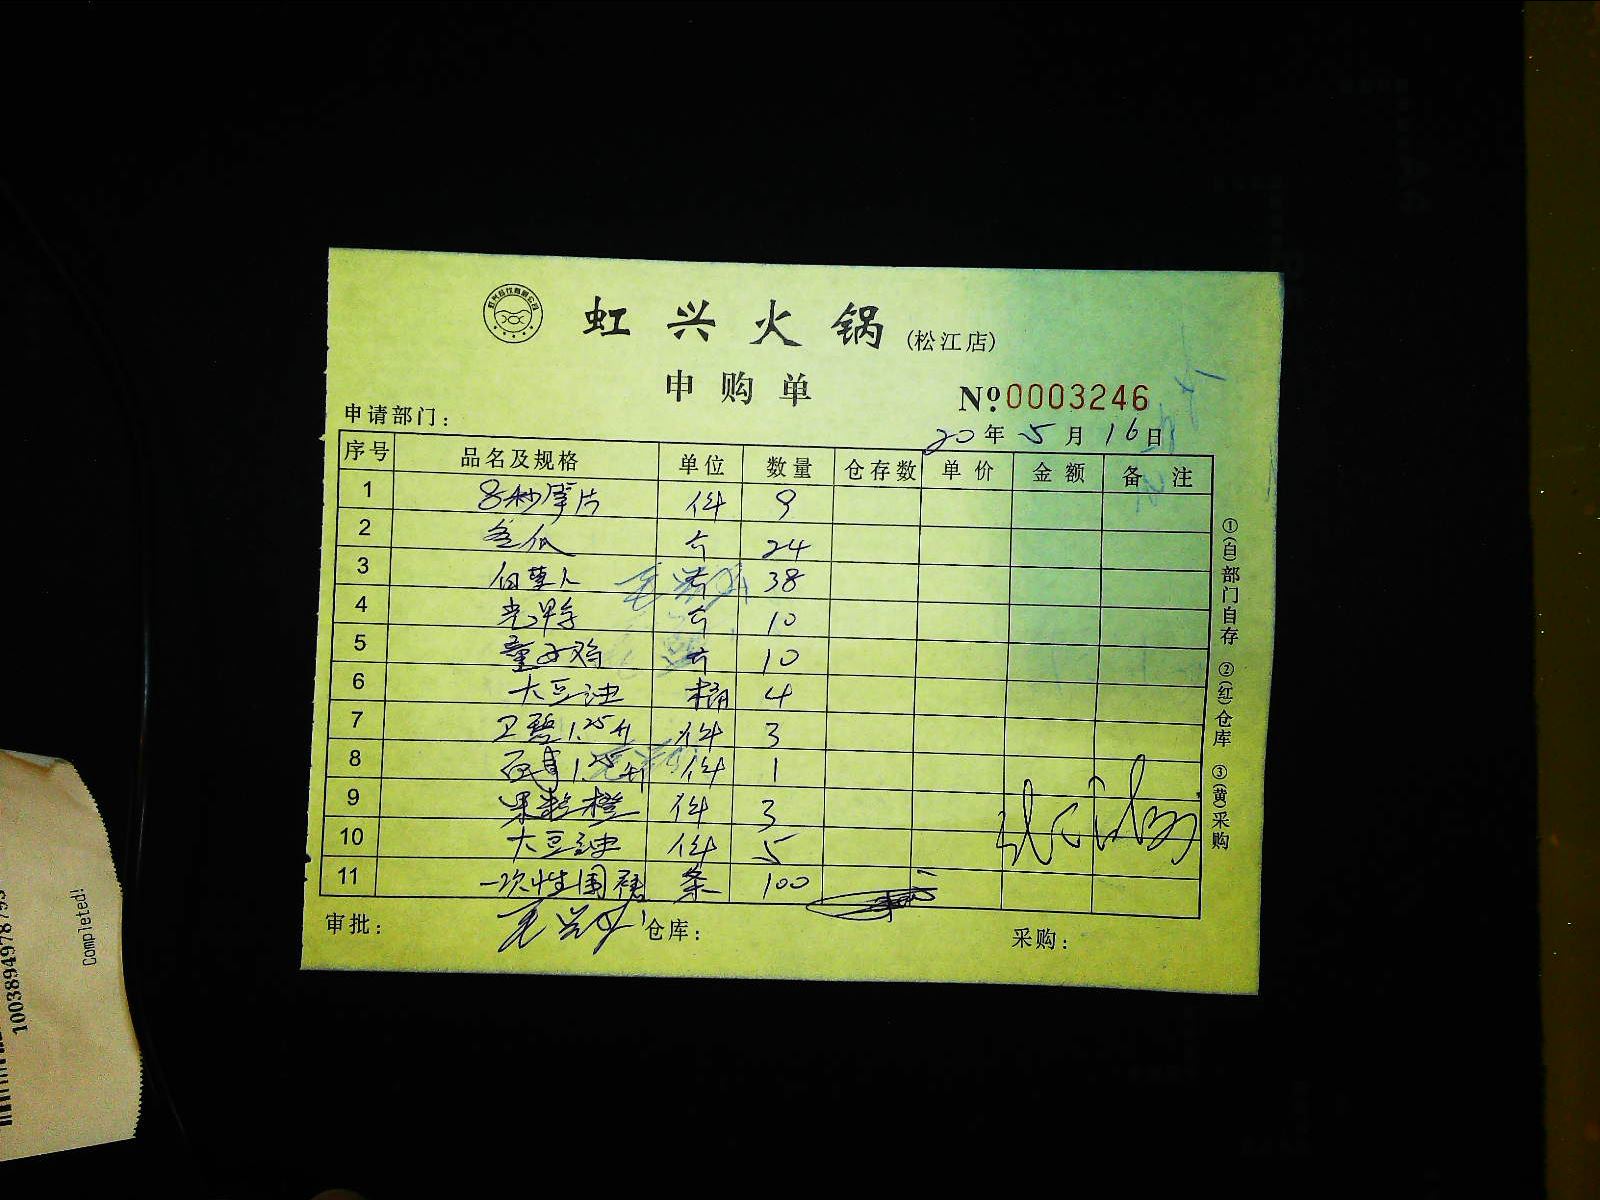 虹兴火锅(松江店)
申购单
№0003246
申请部门:
20年5月16日
序号 品名及规格 单位 数量 仓存数 单价 金额 备注
1 8秒摩片 件 9
2 冬瓜 个 24
3 38
4 个 10
5 童子鸡 个 10
6 大豆油 桶 4
7 卫碧1.25升 件 3
8 1.25升 件 1
9 果粒橙 件 3
10 大豆油 件 5
11 一次性围裙 条 100
审批: 仓库: 采购:
①(白)部门自存 ②(红)仓库 ③(黄)采购
Completed!